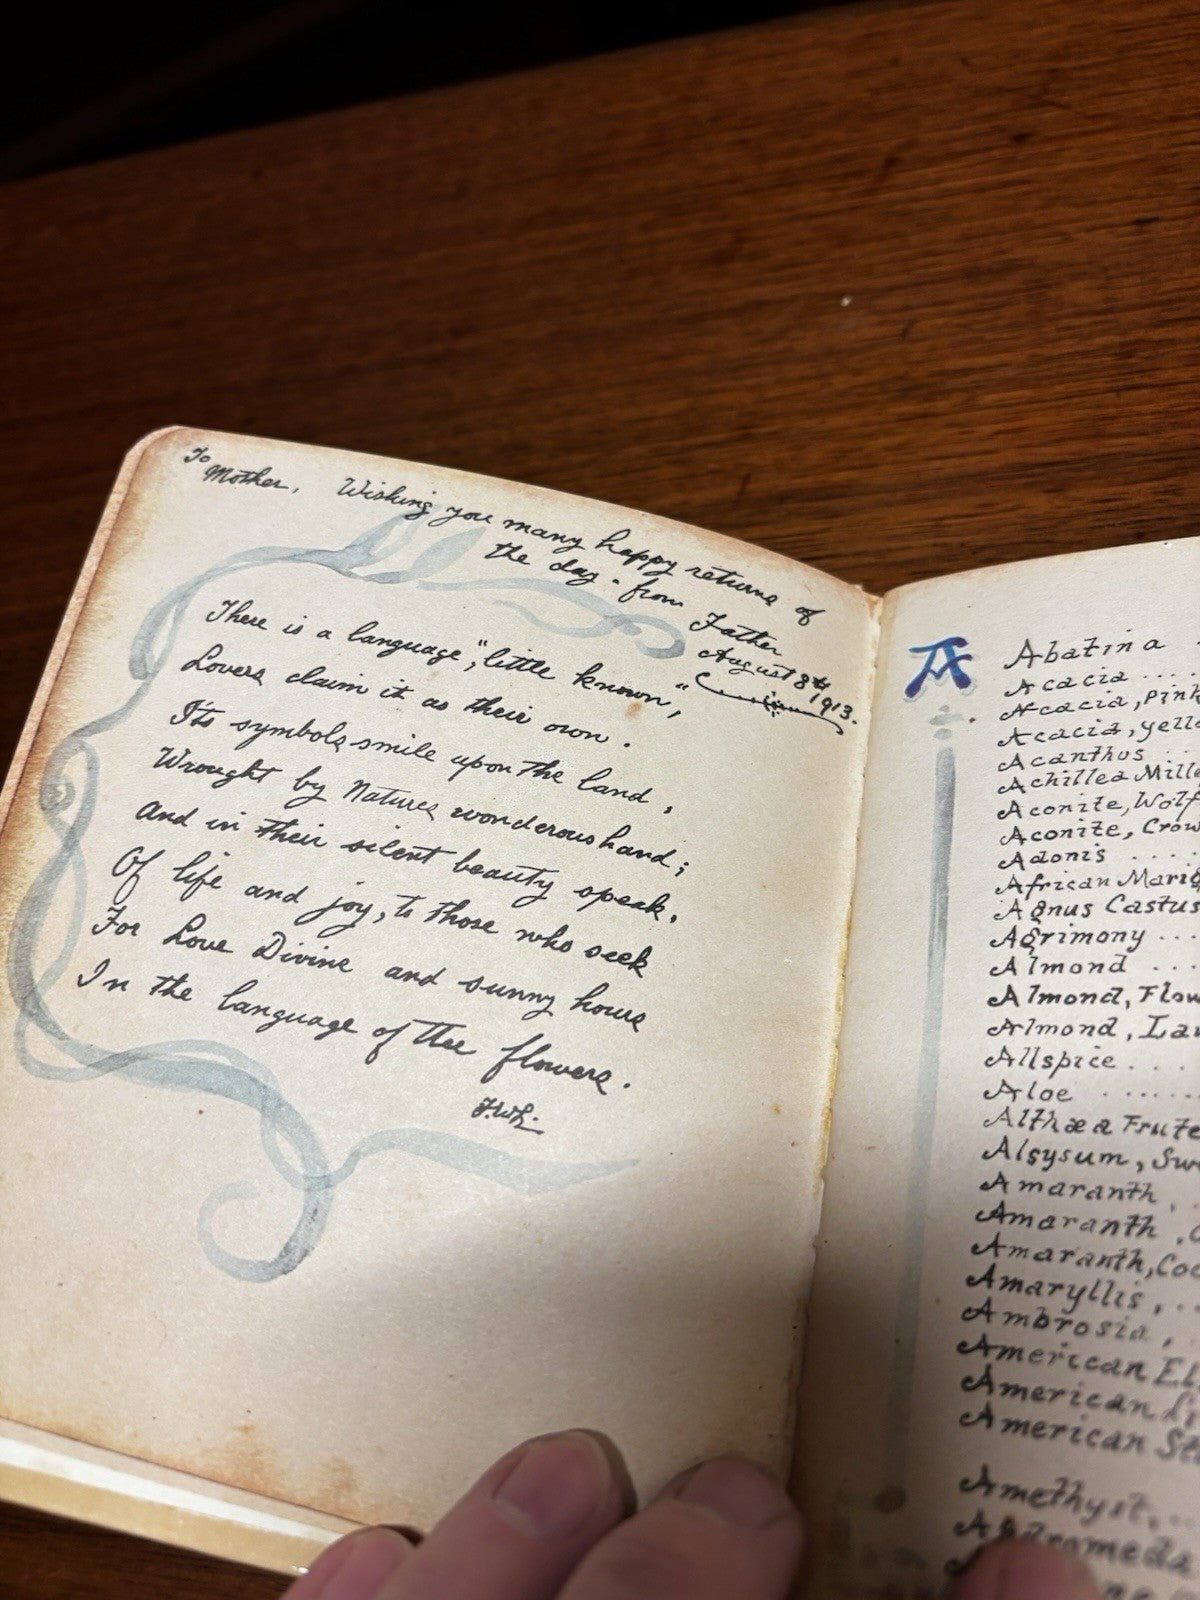 To
Mother, Wishing you many happy returns of
the day. from Father
August 8th 1913.
There is a language, "little known",
Lovers claim it as their own.
Its symbols smile upon the land,
Wrought by Natures wonderous hand;
And in their silent beauty speak,
Of life and joy, to those who seek
For Love Divine and sunny hours
In the language of the flowers.
A
Abatina
Acacia ....
Acacia, pink
Acacia, yello
Acanthus ...
Achillea Mille
Aconite, Wolf
Aconite, Crow
Adonis ....
African Marig
Agnus Castus
Agrimony ...
Almond ...
Almond, Flow
Almond, Lau
Allspice ....
Aloe ......
Althæa Frute
Alsysum, Swe
Amaranth, .
Amaranth, 
Amaranth, Coc
Amaryllis, ..
Ambrosia, .
American El
American Li
American Sta
Amethyst, ..
Andromeda